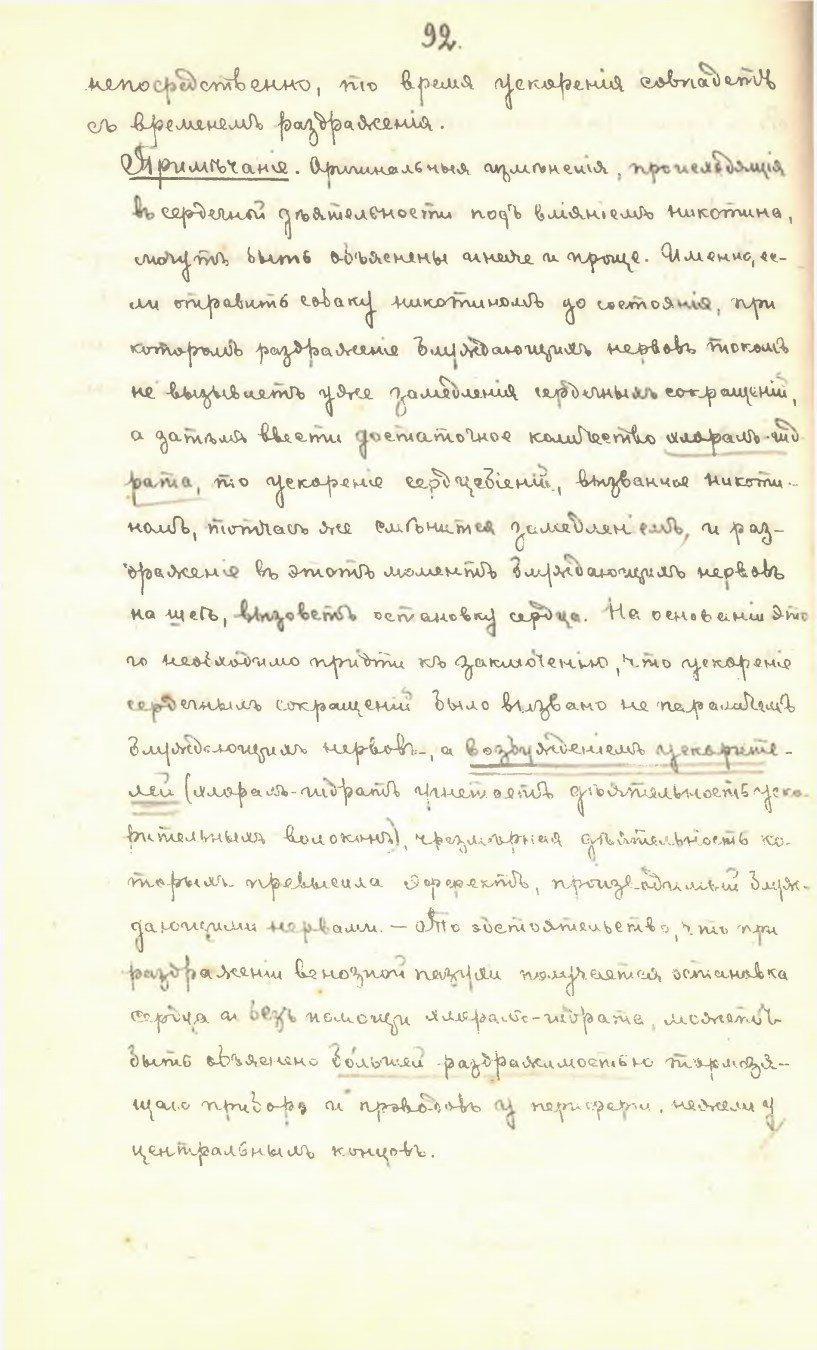 92.
непосредственно, то время ускоренія совпадетъ
съ временемъ раздраженія.
Примѣчаніе. Оригинальныя измѣненія, происходящія
въ сердечной дѣятельности подъ вліяніемъ никотина,
могутъ быть объяснены иначе и проще. Именно, ес-
ли отравить собаку никотиномъ до состоянія, при
которомъ раздраженіе блуждающихъ нервовъ токомъ
не вызываетъ уже замедленія сердечныхъ сокращеній,
а затѣмъ ввести достаточное количество хлоралъ-гид
рата, то ускореніе сердцебіеній, вызванное никоти-
номъ, тотчасъ же смѣнится замедленіемъ, и раз-
драженіе въ этотъ моментъ блуждающихъ нервовъ
на шеѣ, вызоветъ остановку сердца. На основаніи это
го необходимо придти къ заключенію, что ускореніе
сердечныхъ сокращеній было вызвано не параличемъ
блуждающихъ нервовъ, а возбужденіемъ ускорите-
лей (хлоралъ-гидратъ угнетаетъ дѣятельность уско-
рительныхъ волоконъ), чрезмѣрная дѣятельность ко-
торыхъ превысила эффектъ, производимый блуж-
дающими нервами. — То обстоятельство, что при
раздраженіи венозной пазухи получается остановка
сердца и безъ помощи хлоралъ-гидрата, можетъ
быть объяснено большей раздражимостью тормозя-
щаго прибора и проводовъ у периферіи, нежели у
центральныхъ концовъ.